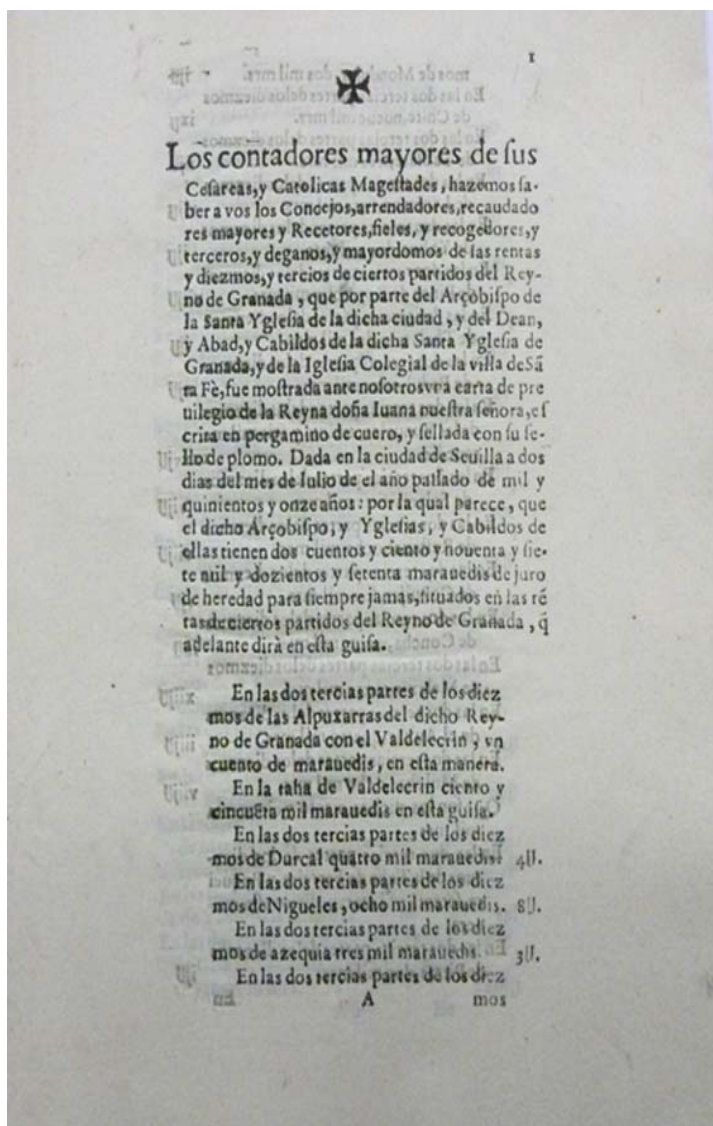 1
✠
Los contadores mayores de ſus
Ceſareas, y Catolicas Mageſtades, hazemos ſa-
ber a vos los Concejos, arrendadores, recaudado
res mayores y Recetores, fieles, y recogedores, y
terceros, y deganos, y mayordomos de las rentas
y diezmos, y tercios de ciertos partidos del Rey-
no de Granada, que por parte del Arçobiſpo de
la Santa Ygleſia de la dicha ciudad, y del Dean,
y Abad, y Cabildos de la dicha Santa Ygleſia de
Granada, y de la Igleſia Colegial de la villa de Sã
ta Fè, fue moſtrada ante noſotros vna carta de pre
uilegio de la Reyna doña Iuana nueſtra ſeñora, eſ
crita en pergamino de cuero, y ſellada con ſu ſe-
llo de plomo. Dada en la ciudad de Seuilla a dos
dias del mes de Iulio de el año paſſado de mil y
quinientos y onze años: por la qual parece, que
el dicho Arçobiſpo, y Ygleſias, y Cabildos de
ellas tienen dos cuentos y ciento y nouenta y ſie-
te mil y dozientos y ſetenta marauedis de juro
de heredad para ſiempre jamas, ſituados en las rẽ
tas de ciertos partidos del Reyno de Granada, q̃
adelante dirà en eſta guiſa.
En las dos tercias partes de los diez
mos de las Alpuxarras del dicho Rey-
no de Granada con el Valdelecrin, vn
cuento de marauedis, en eſta manera.
En la taha de Valdelecrin ciento y
cincuẽta mil marauedis en eſta guiſa.
En las dos tercias partes de los diez
mos de Durcal quatro mil marauedis. 4U.
En las dos tercias partes de los diez
mos de Nigueles, ocho mil marauedis. 8U.
En las dos tercias partes de los diez
mos de azequia tres mil marauedis. 3U.
En las dos tercias partes de los diez
A mos